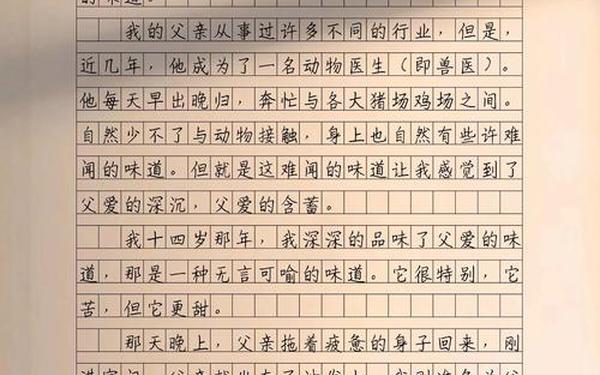 的味道。
我的父亲从事过许多不同的行业，但是，
近几年，他成为了一名动物医生（即兽医）。
他每天早出晚归，奔忙与各大猪场鸡场之间。
自然少不了与动物接触，身上也自然有些许难
闻的味道。但就是这难闻的味道让我感觉到了
父爱的深沉，父爱的含蓄。
我十四岁那年，我深深的品味了父爱的味
道，那是一种无言可喻的味道。它很特别，它
苦，但它更甜。
那天晚上，父亲拖着疲惫的身子回来，刚